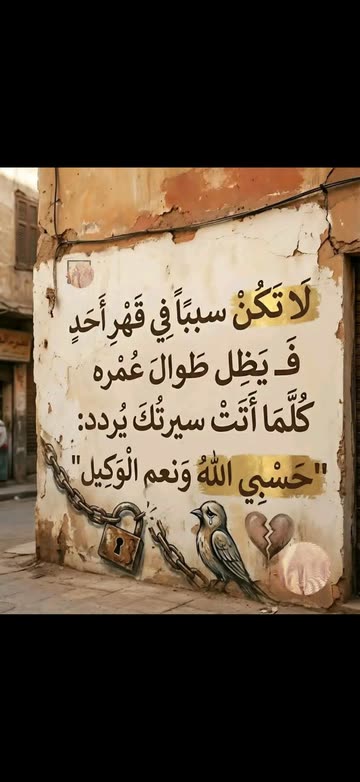 لَا تَكُنْ سببًا فِي قَهْرِ أَحَدٍ
فَـ يَظِل طَوالَ عُمْره
كُلَّمَا أَتَتْ سيرتُكَ يُردد:
"حَسْبِي اللهُ وَنعم الْوَكِيل"